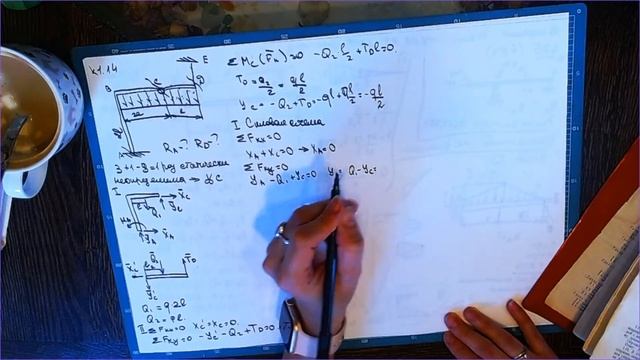 к1.14
B
C
D
E
A
R_A-? R_D-?
3+1-3=1 раз статически
неопределима → ∦ C
I
X_C
Y_C
Q_1
M_A
X_A
Y_A
X'_C
Q_2
T_D
Y'_C
Q_1 = q·2l
Q_2 = ql
II ΣF_kx=0 X'_C=X_C=0
ΣF_ky=0 -Y'_C-Q_2+T_D=0
ΣM_C(F̄_k)=0 -Q_2 l/2+T_D l=0
T_D=Q_2/2=ql/2
Y'_C=-Q_2+T_D=-ql+ql/2=-ql/2
I Силовая схема
ΣF_kx=0
X_A+X_C=0 → X_A=0
ΣF_ky=0
Y_A-Q_1+Y_C=0 Y_A=Q_1-Y_C=